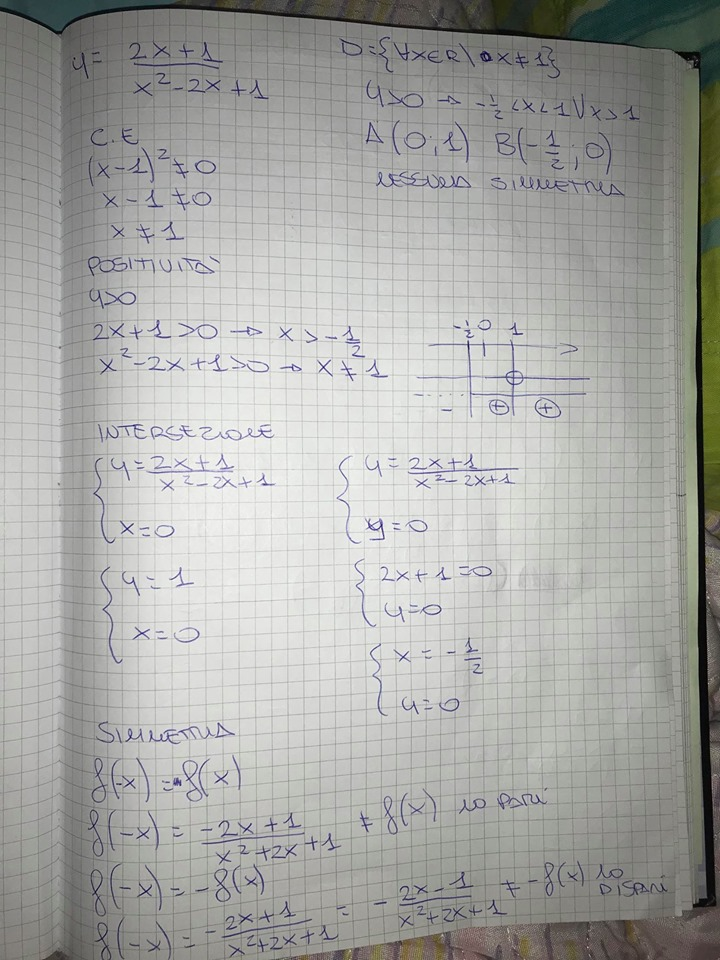 y = (2x+1)/(x²-2x+1)
D={∀x∈R \ x≠1}
y>0 → -1/2 <x<1 ∨ x>1
A(0;1) B(-1/2;0)
NESSUNA SIMMETRIA
C.E
(x-1)²≠0
x-1≠0
x≠1
POSITIVITÀ
y>0
2x+1>0 → x>-1/2
x²-2x+1>0 → x≠1
-1/2 0 1
- + +
INTERSEZIONE
{ y = (2x+1)/(x²-2x+1)
x=0
{ y=1
x=0
{ y = (2x+1)/(x²-2x+1)
y=0
{ 2x+1=0
y=0
{ x = -1/2
y=0
SIMMETRIA
f(-x) = f(x)
f(-x) = (-2x+1)/(x²+2x+1) ≠ f(x) no PARI
f(-x) = -f(x)
f(-x) = (-2x+1)/(x²+2x+1) = - (2x-1)/(x²+2x+1) ≠ -f(x) no DISPARI